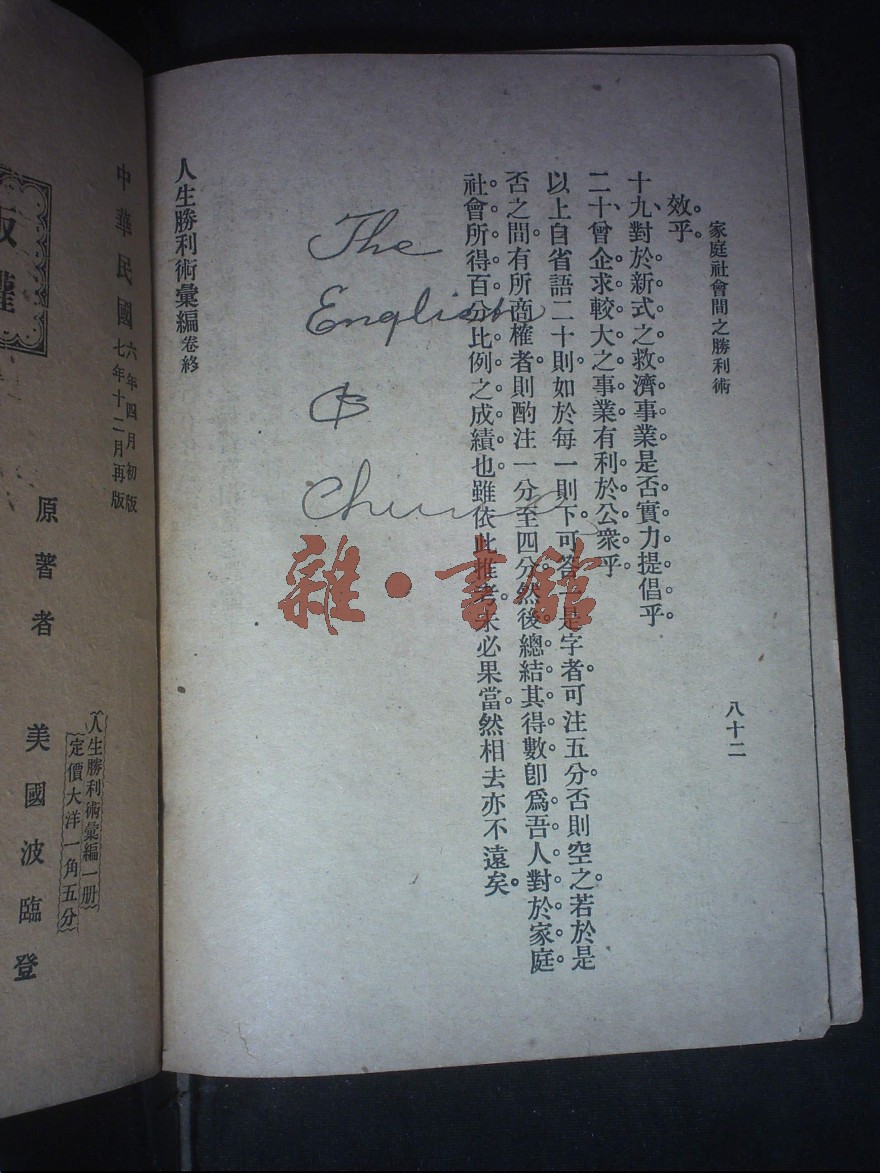 家庭社會間之勝利術
八十二
效乎。
十九、對於新式之救濟事業是否實力提倡乎。
二十、曾企求較大之事業有利於公衆乎
以上自省語二十則如於每一則下可答一是字者可注五分否則空之若於是
否之間有所商榷者則酌注一分至四分然後總結其得數卽爲吾人對於家庭
社會所得百分比例之成績也雖依此推考未必果當然相去亦不遠矣。
人生勝利術彙編卷終
The
English
&
雜·書館
中華民國六年四月初版
七年十二月再版
版權
原著者 美國波臨登
人生勝利術彙編一册
定價大洋一角五分